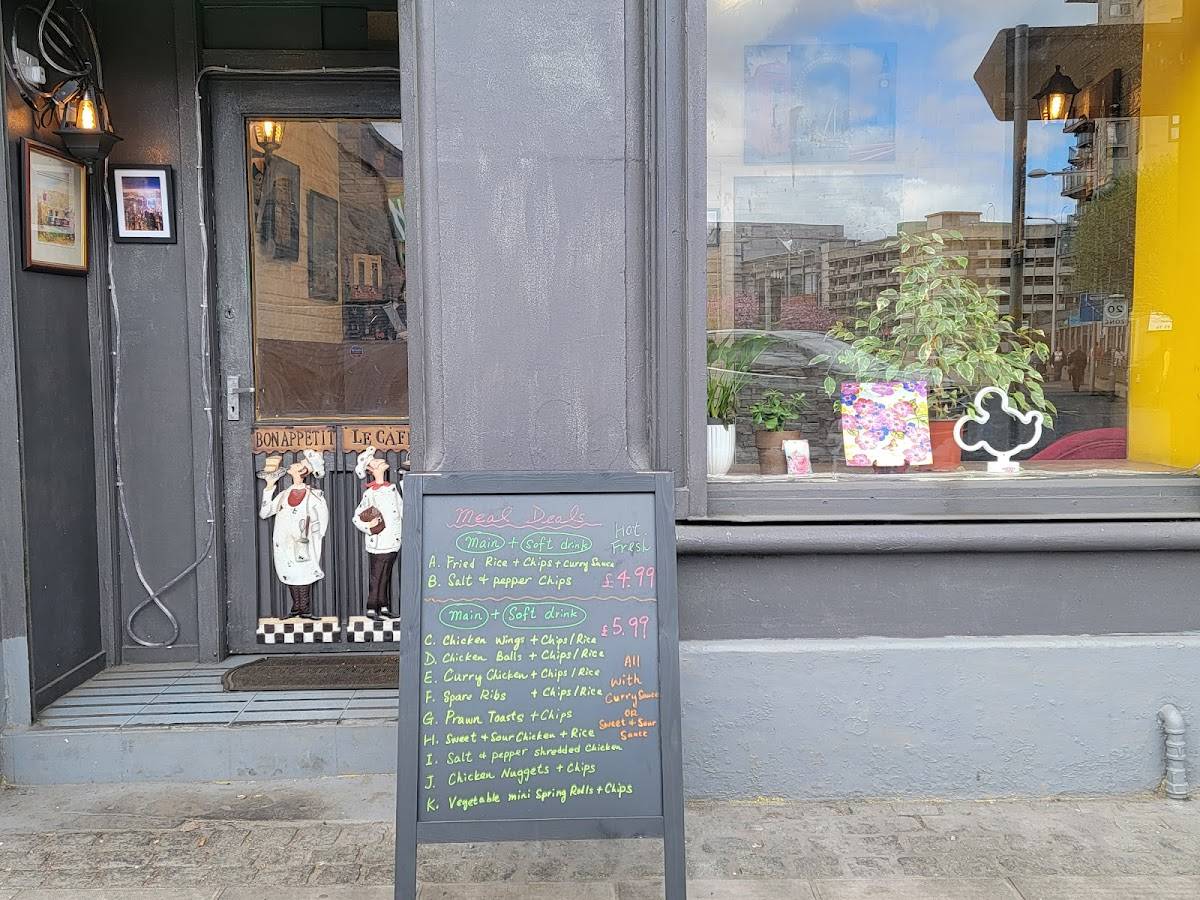 BON APPETIT
LE CAFE
Meal Deals
Main + Soft drink
Hot
Fresh
A. Fried Rice + Chips + Curry Sauce
B. Salt & pepper Chips
£4.99
Main + Soft drink
£5.99
C. Chicken Wings + Chips/Rice
D. Chicken Balls + Chips/Rice
E. Curry Chicken + Chips/Rice
F. Spare Ribs + Chips/Rice
G. Prawn Toasts + Chips
H. Sweet & Sour Chicken + Rice
I. Salt & pepper shredded Chicken
J. Chicken Nuggets + Chips
K. Vegetable mini Spring Rolls + Chips
All
with
Curry Sauce
OR
Sweet & Sour
Sauce
20
ZONE